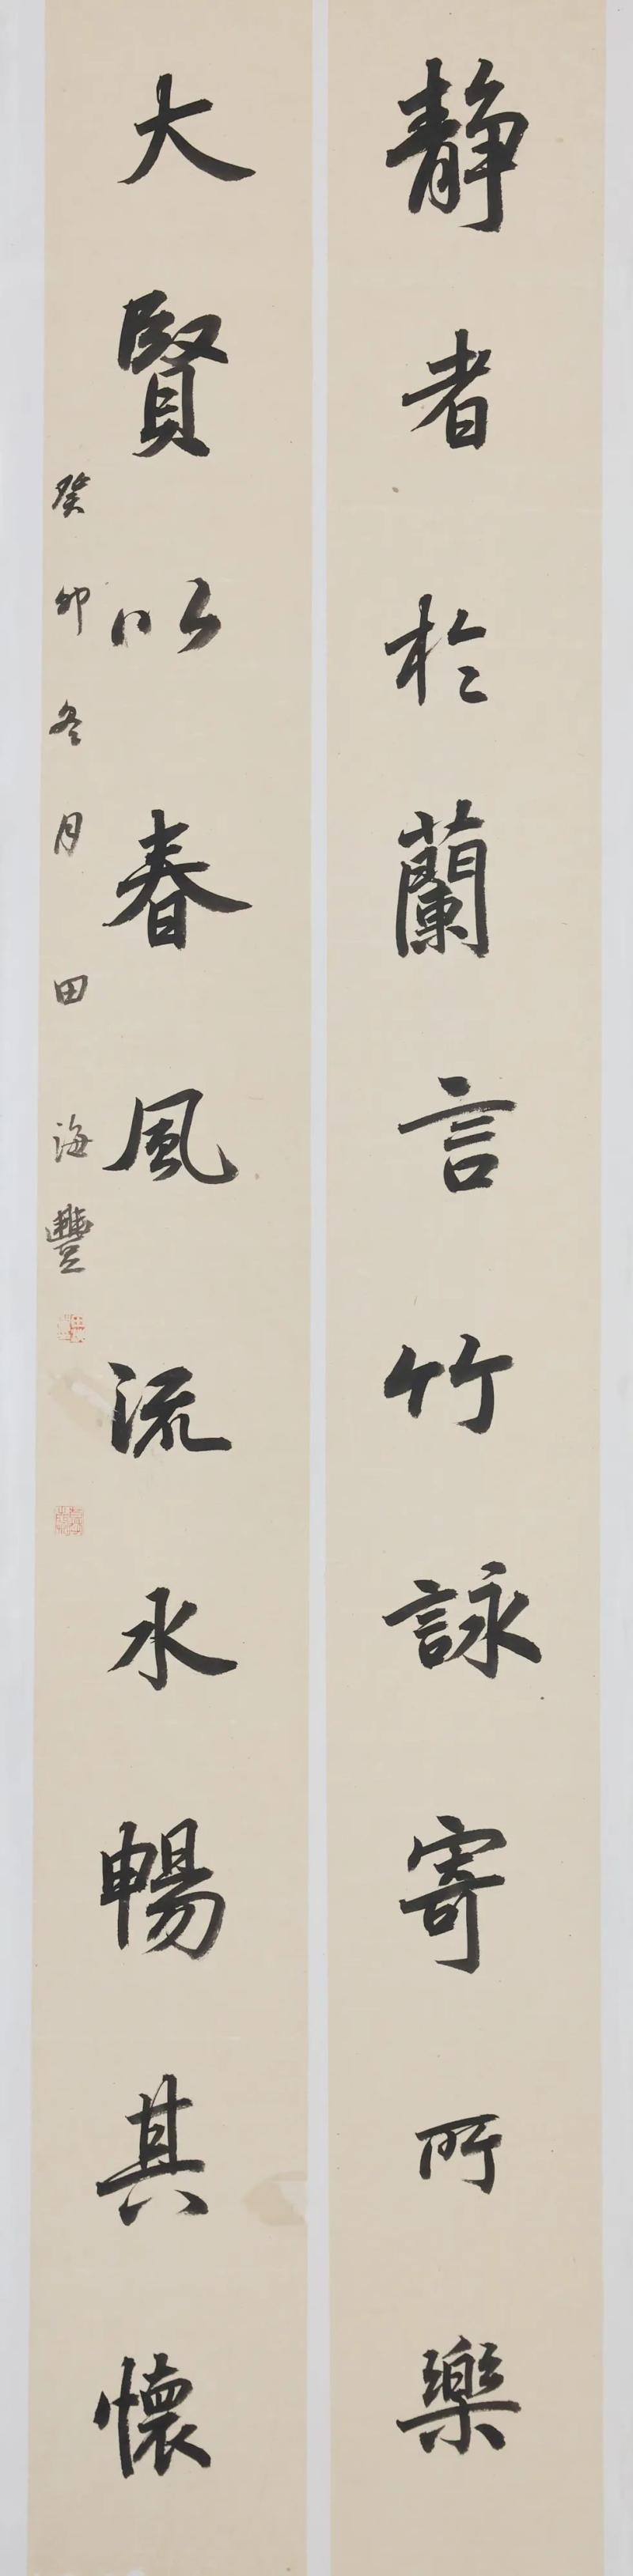 静者於蘭言竹詠寄所樂
大賢以春風流水暢其懷
癸卯冬月田海豐